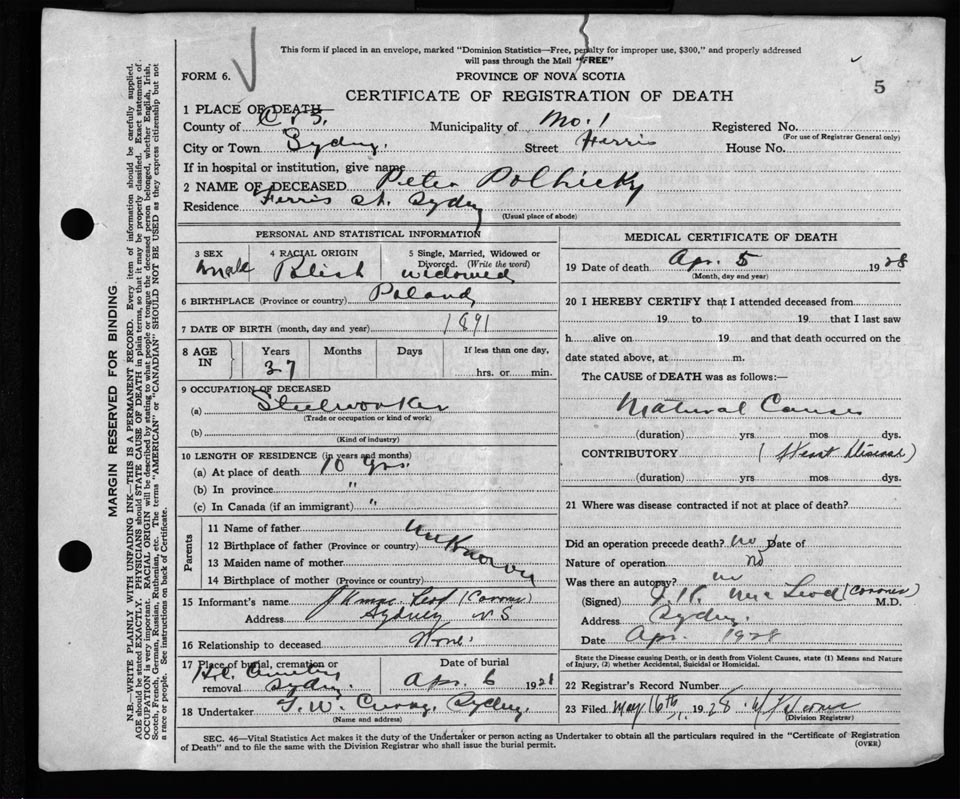 This form if placed in an envelope, marked "Dominion Statistics—Free, penalty for improper use, $300," and properly addressed
will pass through the Mail "FREE"
5
FORM 6.
PROVINCE OF NOVA SCOTIA
CERTIFICATE OF REGISTRATION OF DEATH
MARGIN RESERVED FOR BINDING.
N.B.—WRITE PLAINLY WITH UNFADING INK—THIS IS A PERMANENT RECORD. Every item of information should be carefully supplied.
AGE should be stated EXACTLY. PHYSICIANS should STATE CAUSE OF DEATH in plain terms, so that it may be properly classified. Exact statement of
OCCUPATION is very important. RACIAL ORIGIN will be described by stating to what people or tongue the deceased person belonged, whether English, Irish,
Scotch, French, German, Russian, Ruthenian, etc. The terms "AMERICAN" or "CANADIAN" SHOULD NOT BE USED as they express citizenship but not
a race or people. See instructions on back of Certificate.
1 PLACE OF DEATH
County of C. B. Municipality of No. 1 Registered No.
(For use of Registrar General only)
City or Town Sydney. Street Ferris House No.
If in hospital or institution, give name
2 NAME OF DECEASED Peter Polhicky
Residence Ferris St. Sydney
(Usual place of abode)
PERSONAL AND STATISTICAL INFORMATION
3 SEX male
4 RACIAL ORIGIN Polish
5 Single, Married, Widowed or Divorced. (Write the word) widowed
6 BIRTHPLACE (Province or country) Poland
7 DATE OF BIRTH (month, day and year) 1891
8 AGE IN Years 37 Months Days If less than one day, hrs. or min.
9 OCCUPATION OF DECEASED
(a) Steelworker
(Trade or occupation or kind of work)
(b)
(Kind of industry)
10 LENGTH OF RESIDENCE (in years and months)
(a) At place of death 10 yrs.
(b) In province "
(c) In Canada (if an immigrant) "
Parents
11 Name of father
12 Birthplace of father (Province or country) Unknown
13 Maiden name of mother
14 Birthplace of mother (Province or country)
15 Informant's name (Coroner)
Address Sydney N S
16 Relationship to deceased None.
17 Place of burial, cremation or removal Sydney.
Date of burial Apr. 6 1928
18 Undertaker T. W. Curry, Sydney.
(Name and address)
MEDICAL CERTIFICATE OF DEATH
19 Date of death Apr. 5 1928
(Month, day and year)
20 I HEREBY CERTIFY that I attended deceased from
19 to 19 that I last saw
h alive on 19 and that death occurred on the
date stated above, at m.
The CAUSE of DEATH was as follows:—
Natural Causes
(duration) yrs. mos dys.
CONTRIBUTORY (Heart Disease)
(duration) yrs mos dys.
21 Where was disease contracted if not at place of death?
Did an operation precede death? no Date of
Nature of operation no
Was there an autopsy? no
(Signed) Mac Leod (Coroner) M.D.
Address Sydney.
Date Apr. 1928
State the Disease causing Death, or in death from Violent Causes, state (1) Means and Nature
of Injury, (2) whether Accidental, Suicidal or Homicidal.
22 Registrar's Record Number
23 Filed May 16th, 1928
(Division Registrar)
SEC. 46—Vital Statistics Act makes it the duty of the Undertaker or person acting as Undertaker to obtain all the particulars required in the "Certificate of Registration
of Death" and to file the same with the Division Registrar who shall issue the burial permit.
(OVER)